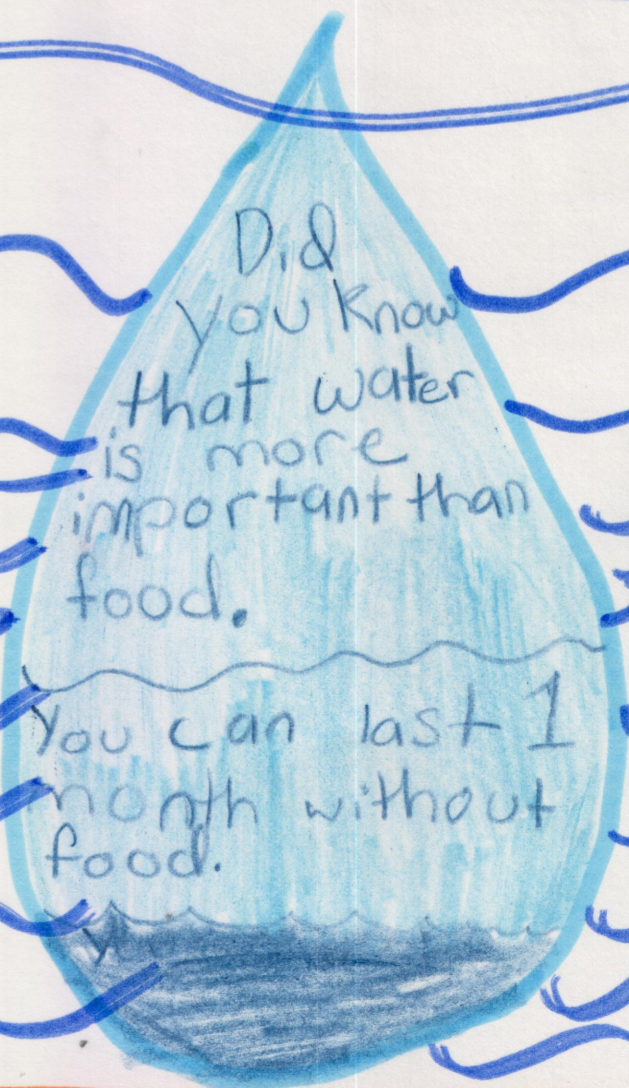 Did
you know
that water
is more
important than
food.
You can last 1
month without
food.